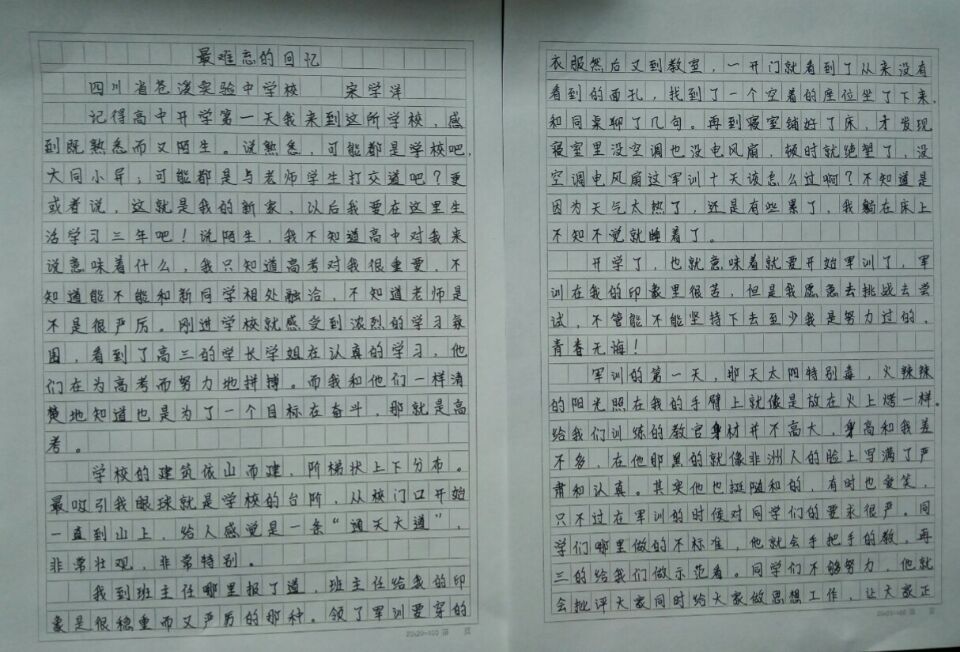 最难忘的回忆
四川省苍溪实验中学校 宋学洋
记得高中开学第一天我来到这所学校，感
到既熟悉而又陌生。说熟悉，可能都是学校吧，
大同小异，可能都是与老师学生打交道吧？更
或者说，这就是我的新家，以后我要在这里生
活学习三年吧！说陌生，我不知道高中对我来
说意味着什么，我只知道高考对我很重要，不
知道能不能和新同学相处融洽，不知道老师是
不是很严厉。刚进学校就感受到浓烈的学习氛
围，看到了高三的学长学姐在认真的学习，他
们在为高考而努力地拼搏。而我和他们一样清
楚地知道也是为了一个目标在奋斗，那就是高
考。
学校的建筑依山而建，阶梯状上下分布。
最吸引我眼球就是学校的台阶，从校门口开始
一直到山上，给人感觉是一条“通天大道”，
非常壮观，非常特别。
我到班主任哪里报了道，班主任给我的印
象是很稳重而又严厉的那种。领了军训要穿的
20×20=400 第 页
衣服然后又到教室，一开门就看到了从来没有
看到的面孔，找到了一个空着的座位坐了下来，
和同桌聊了几句。再到寝室铺好了床，才发现
寝室里没空调也没电风扇，顿时就绝望了，没
空调电风扇这军训十天该怎么过啊？不知道是
因为天气太热了，还是有些累了，我躺在床上
不知不觉就睡着了。
开学了，也就意味着就要开始军训了，军
训在我的印象里很苦，但是我愿意去挑战去尝
试，不管能不能坚持下去至少我是努力过的，
青春无悔！
军训的第一天，那天太阳特别毒，火辣辣
的阳光照在我的手臂上就像是放在火上烤一样。
给我们训练的教官身材并不高大，身高和我差
不多，在他那黑的就像非洲人的脸上写满了严
肃和认真。其实他也挺随和的，有时也爱笑，
只不过在军训的时候对同学们的要求很严。同
学们哪里做的不标准，他就会手把手的教，再
三的给我们做示范着。同学们不够努力，他就
会批评大家同时给大家做思想工作，让大家正
20×20=400 第 页